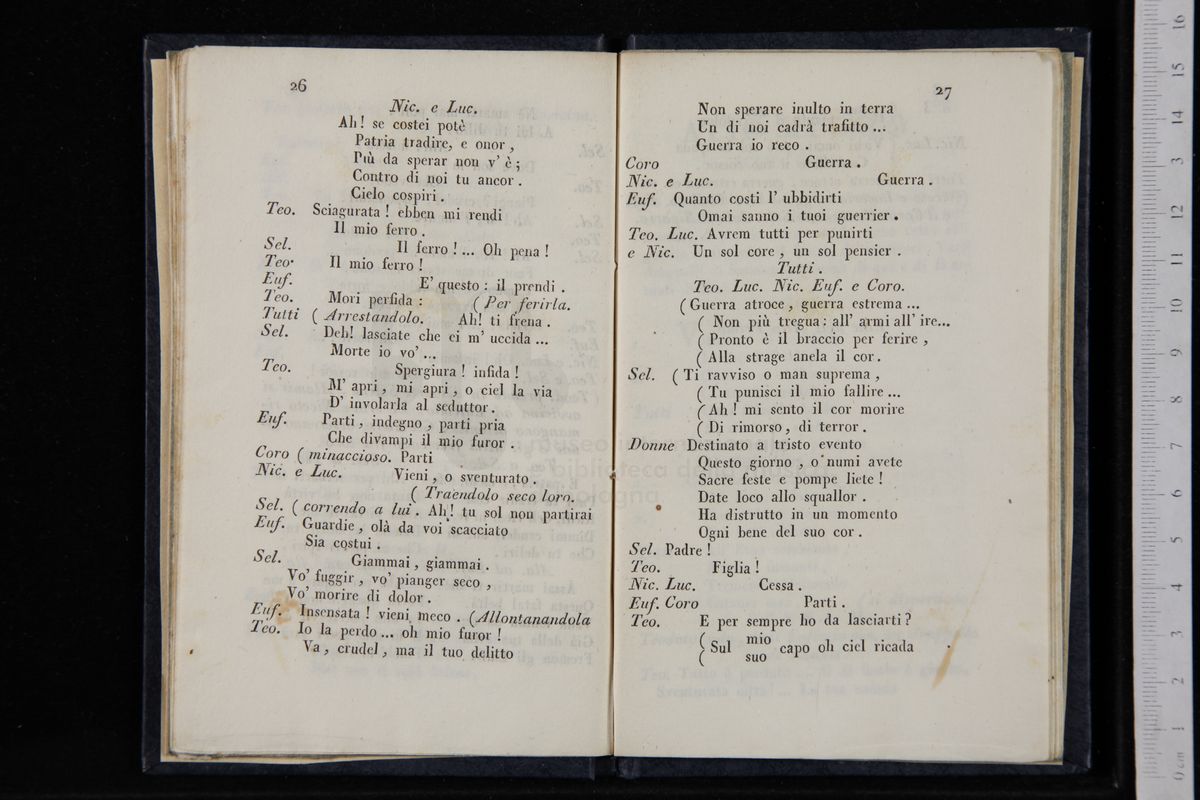 26
Nic. e Luc.
Ah! se costei potè
Patria tradire, e onor,
Più da sperar non v' è;
Contro di noi tu ancor.
Cielo cospiri.
Teo. Sciagurata! ebben mi rendi
Il mio ferro.
Sel. Il ferro!... Oh pena!
Teo. Il mio ferro!
Euf. E' questo: il prendi.
Teo. Mori perfida: (Per ferirla.
Tutti (Arrestandolo. Ah! ti frena.
Sel. Deh! lasciate che ei m' uccida...
Morte io vo'...
Teo. Spergiura! infida!
M' apri, mi apri, o ciel la via
D' involarla al seduttor.
Euf. Parti, indegno, parti pria
Che divampi il mio furor.
Coro (minaccioso. Parti
Nic. e Luc. Vieni, o sventurato.
(Traendolo seco loro.
Sel. (correndo a lui. Ah! tu sol non partirai
Euf. Guardie, olà da voi scacciato
Sia costui.
Sel. Giammai, giammai.
Vo' fuggir, vo' pianger seco,
Vo' morire di dolor.
Euf. Insensata! vieni meco. (Allontanandola
Teo. Io la perdo... oh mio furor!
Va, crudel, ma il tuo delitto
27
Non sperare inulto in terra
Un di noi cadrà trafitto...
Guerra io reco.
Coro Guerra.
Nic. e Luc. Guerra.
Euf. Quanto costi l' ubbidirti
Omai sanno i tuoi guerrier.
Teo. Luc. Avrem tutti per punirti
e Nic. Un sol core, un sol pensier.
Tutti.
Teo. Luc. Nic. Euf. e Coro.
(Guerra atroce, guerra estrema...
( Non più tregua: all' armi all' ire...
( Pronto è il braccio per ferire,
( Alla strage anela il cor.
Sel. (Ti ravviso o man suprema,
( Tu punisci il mio fallire...
( Ah! mi sento il cor morire
( Di rimorso, di terror.
Donne Destinato a tristo evento
Questo giorno, o numi avete
Sacre feste e pompe liete!
Date loco allo squallor.
Ha distrutto in un momento
Ogni bene del suo cor.
Sel. Padre!
Teo. Figlia!
Nic. Luc. Cessa.
Euf. Coro Parti.
Teo. E per sempre ho da lasciarti?
( Sul mio capo oh ciel ricada
( suo